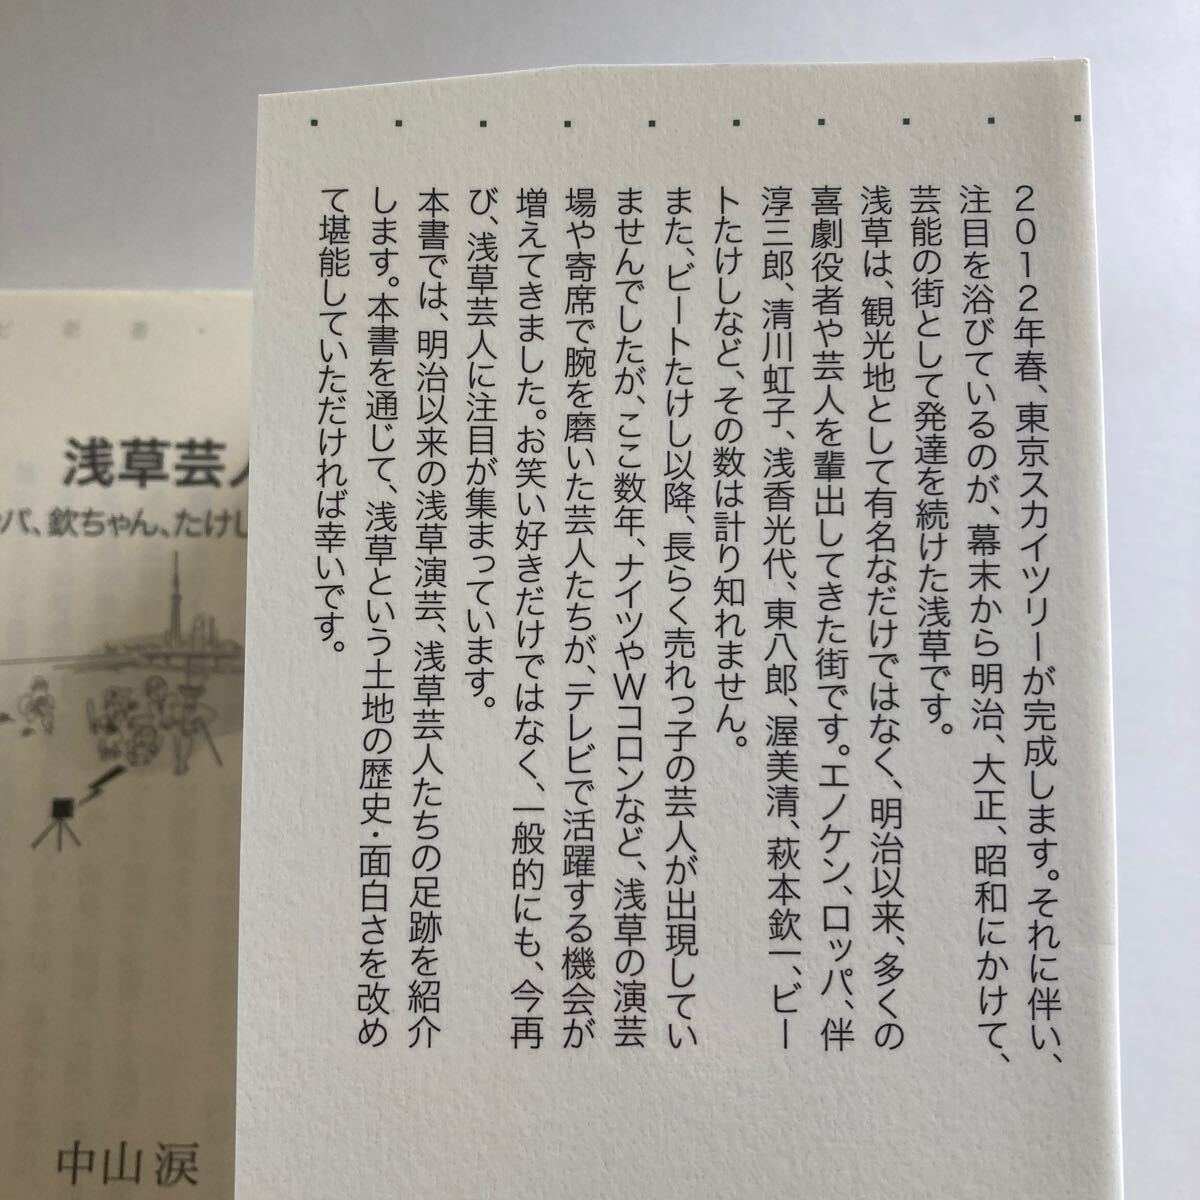 2012年春、東京スカイツリーが完成します。それに伴い、
注目を浴びているのが、幕末から明治、大正、昭和にかけて、
芸能の街として発達を続けた浅草です。
浅草は、観光地として有名なだけではなく、明治以来、多くの
喜劇役者や芸人を輩出してきた街です。エノケン、ロッパ、伴
淳三郎、清川虹子、浅香光代、東八郎、渥美清、萩本欽一、ビー
トたけしなど、その数は計り知れません。
また、ビートたけし以降、長らく売れっ子の芸人が出現してい
ませんでしたが、ここ数年、ナイツやWコロンなど、浅草の演芸
場や寄席で腕を磨いた芸人たちが、テレビで活躍する機会が
増えてきました。お笑い好きだけではなく、一般的にも、今再
び、浅草芸人に注目が集まっています。
本書では、明治以来の浅草演芸、浅草芸人たちの足跡を紹介
します。本書を通じて、浅草という土地の歴史・面白さを改め
て堪能していただければ幸いです。
浅草芸人
パ、欽ちゃん、たけし
中山 涙